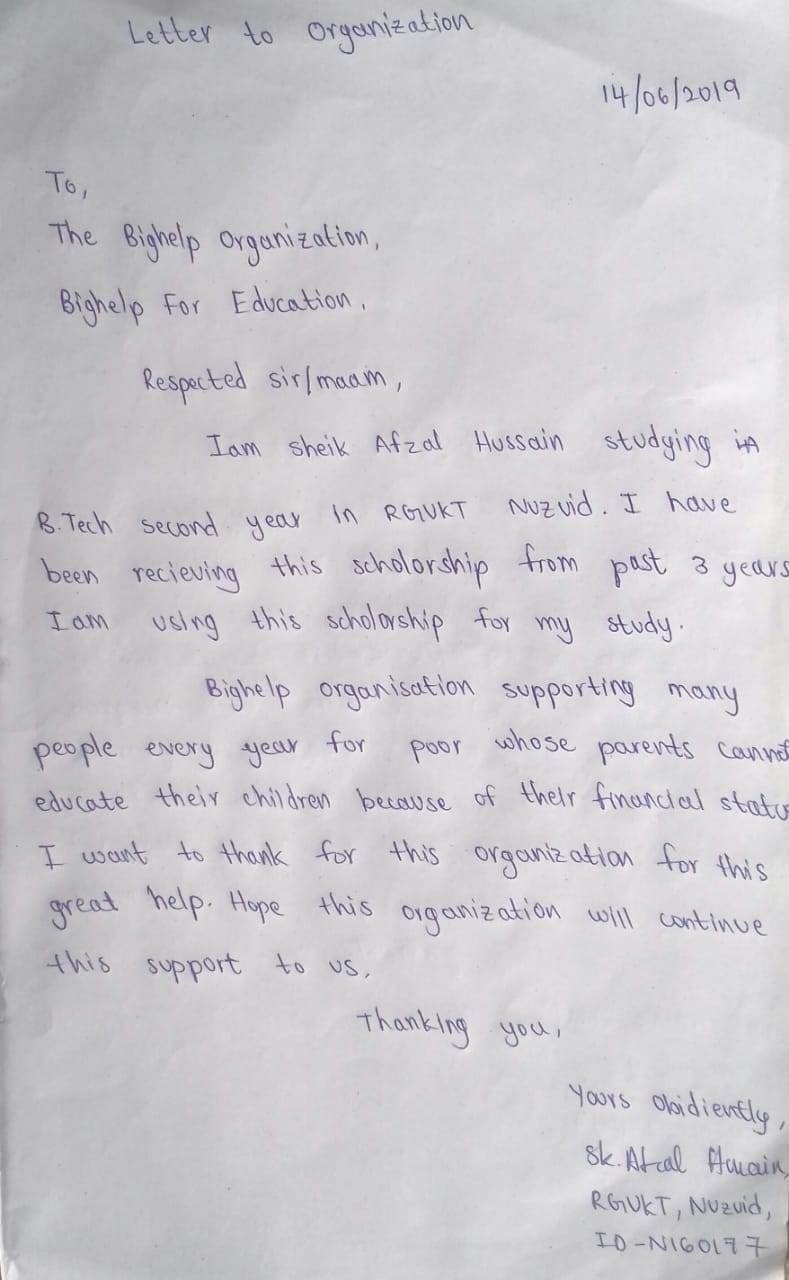 Letter to Organization
14/06/2019
To,
The Bighelp Organization,
Bighelp For Education,
Respected sir/maam,
Iam Sheik Afzal Hussain studying in
B.Tech second year in RGUKT Nuzvid. I have
been recieving this scholorship from past 3 years
I am using this scholorship for my study.
Bighelp organisation supporting many
people every year for poor whose parents cannot
educate their children because of their financial statu
I want to thank for this organization for this
great help. Hope this organization will continue
this support to us.
Thanking you,
Yours obidiently,
Sk. Afzal
RGUKT, Nuzvid,
ID-N160177